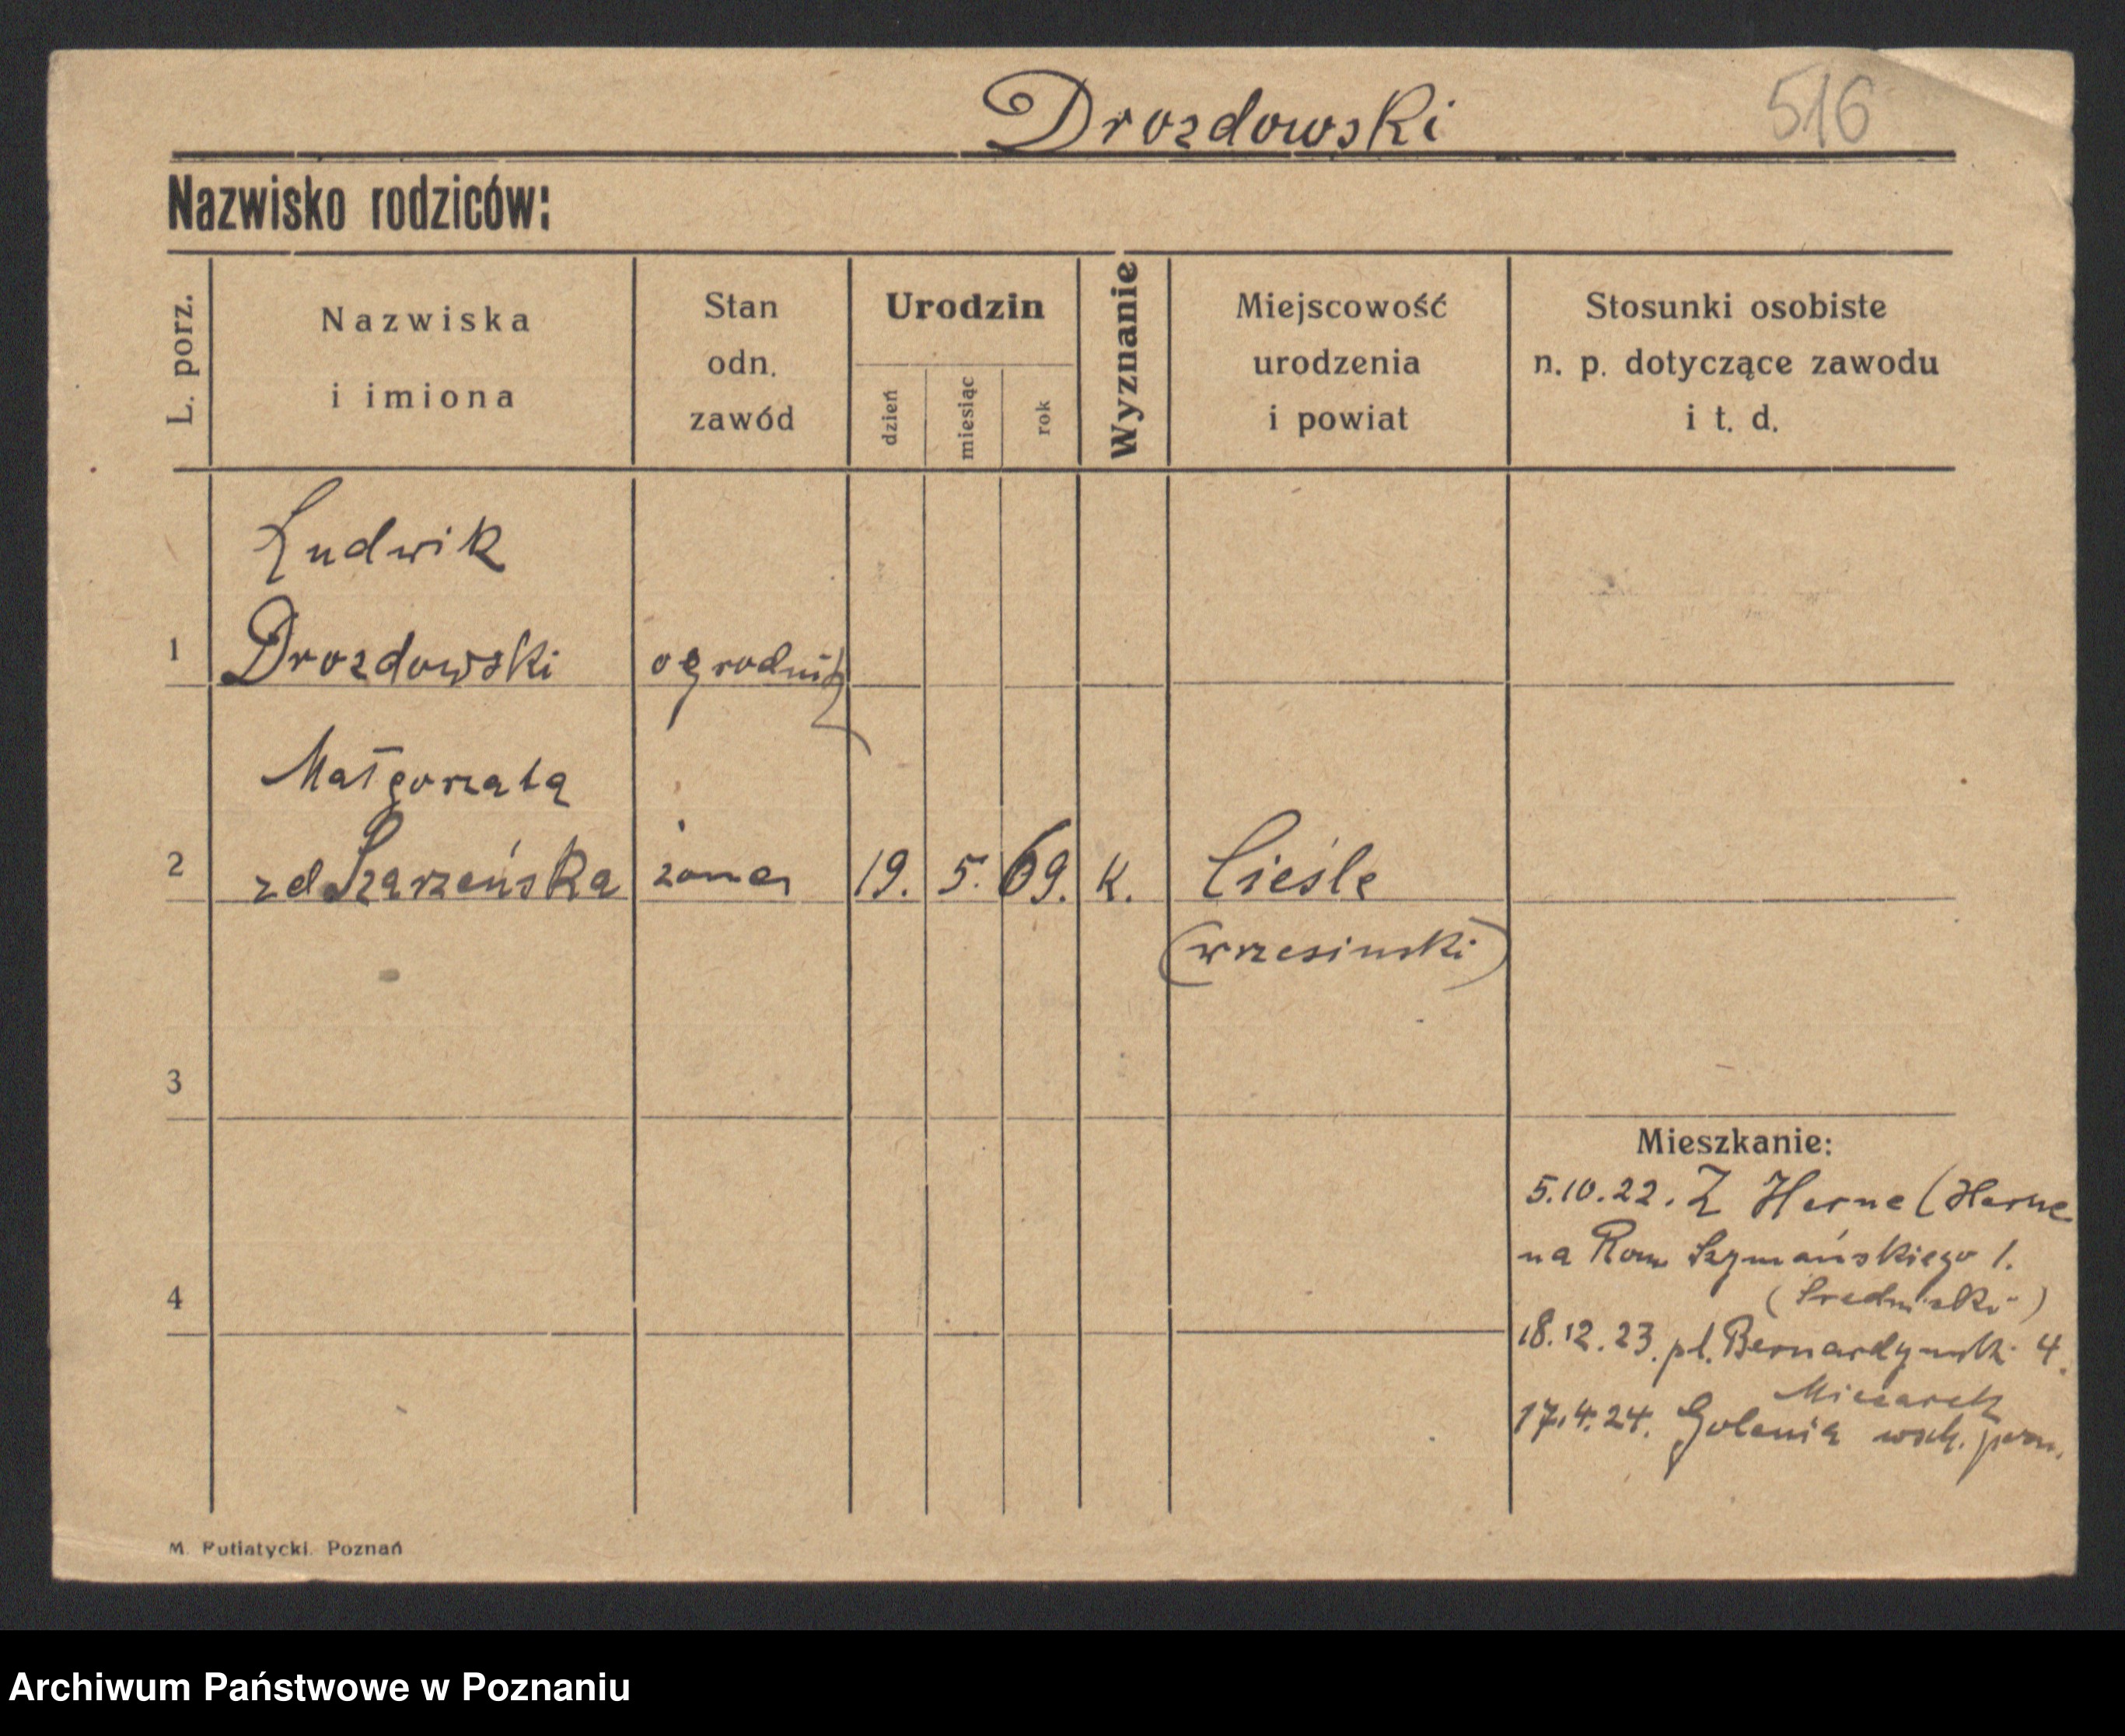 Drozdowski 516
Nazwisko rodziców:
L. porz.
Nazwiska
i imiona
Stan
odn.
zawód
Urodzin
dzień
miesiąc
rok
Wyznanie
Miejscowość
urodzenia
i powiat
Stosunki osobiste
n. p. dotyczące zawodu
i t. d.
Ludwik
1 Drozdowski ogrodnik
Małgorzata
2 zd Szarzeńska żona 19. 5. 69. k. Cieśle
(wrzesinski)
3
Mieszkanie:
5.10.22. Z Herne (Herne
na Rom Szymańskiego 1.
4
(Sredniski)
18.12.23. pl. Bernardynski 4.
17.4.24. wsch. pozn.
M. Putiatycki. Poznań
Archiwum Państwowe w Poznaniu